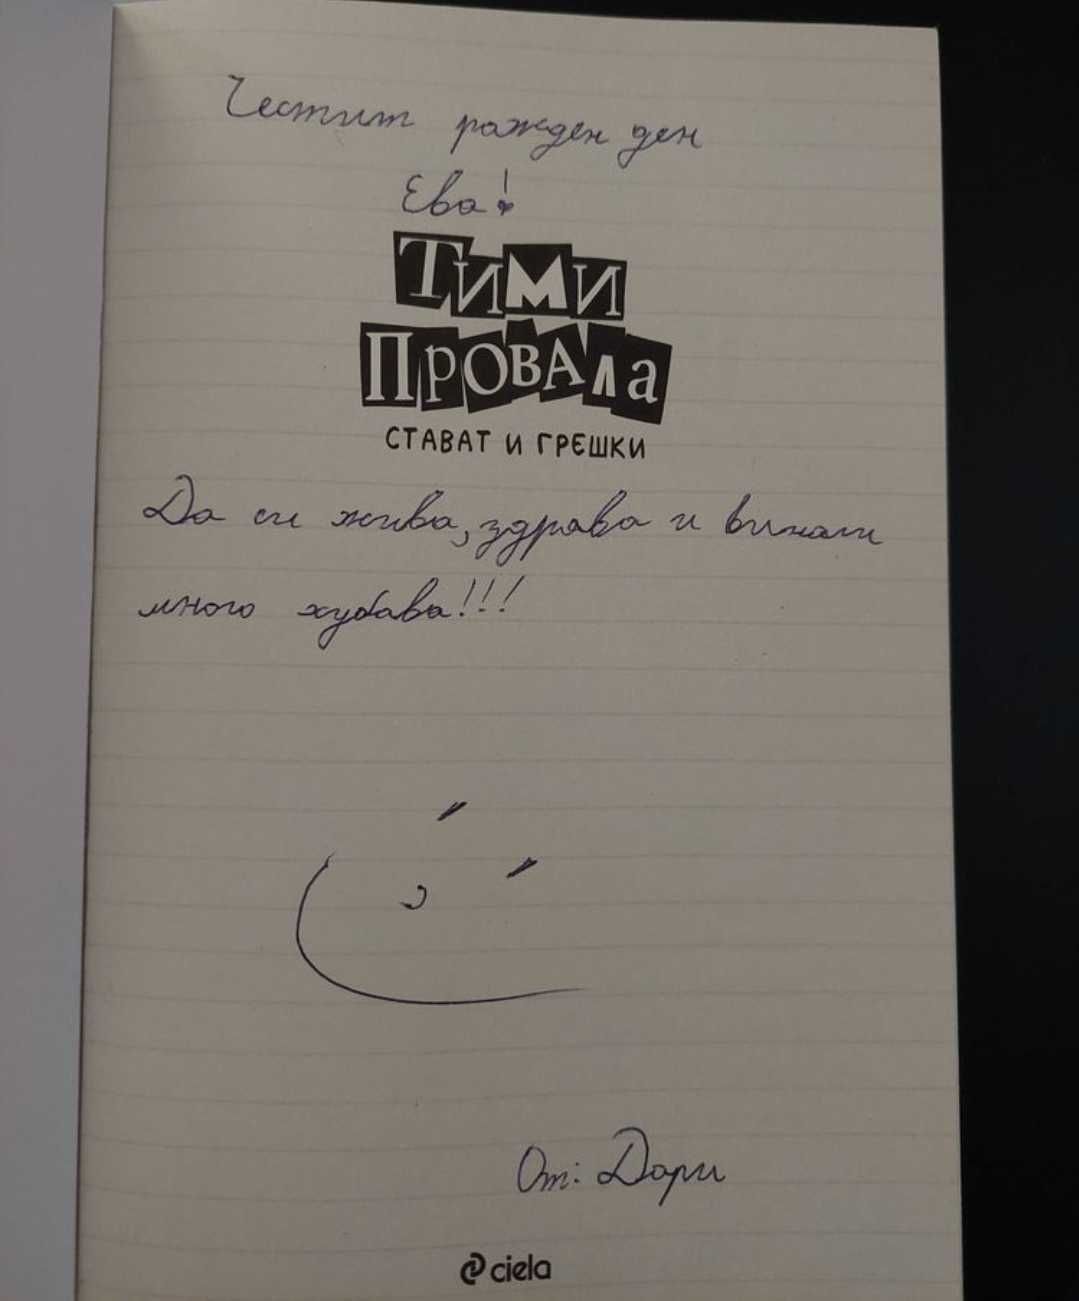 Честит рожден ден
Ева!
ТИМИ
ПРОВАЛА
СТАВАТ И ГРЕШКИ
Да си жива, здрава и винаги
много хубава!!!
От: Дари
ciela